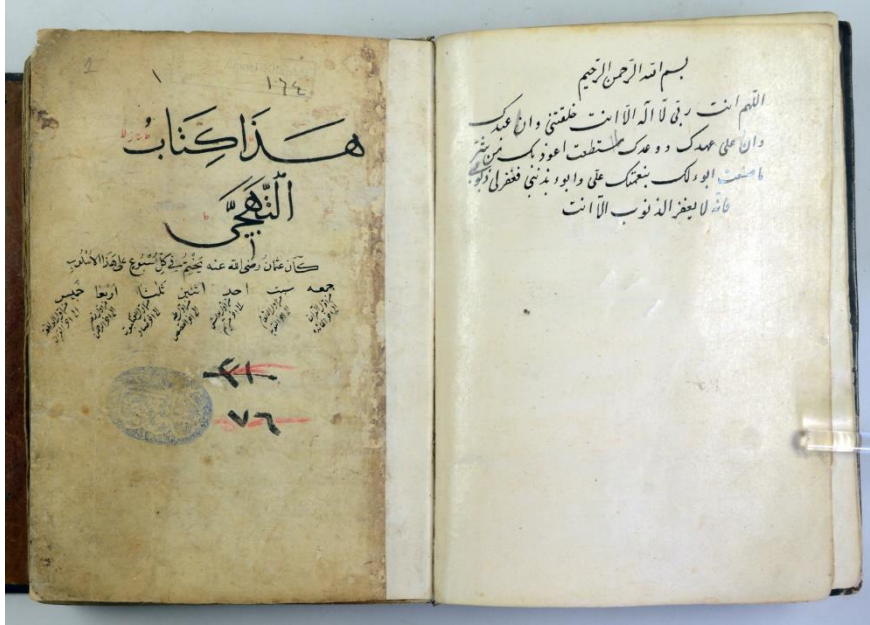 بسم الله الرحمن الرحيم
اللهم انت ربى لا اله الا انت خلقتنى وانا عبدك
وانا على عهدك ووعدك ماستطعت اعوذ بك من شر
ما صنعت ابوء لك بنعمتك على وابوء بذنبى فغفرلى ذنوبى
فانه لا يغفر الذنوب الا انت
2
١
١٦٤
هَذَا كِتَابُ
التَّهَجِّى
كان عثمان رضى الله عنه يختم فى كل اسبوع على هذا الاسلوب
جمعه سبت احد اثنين ثلثا اربعا خميس
٧٦